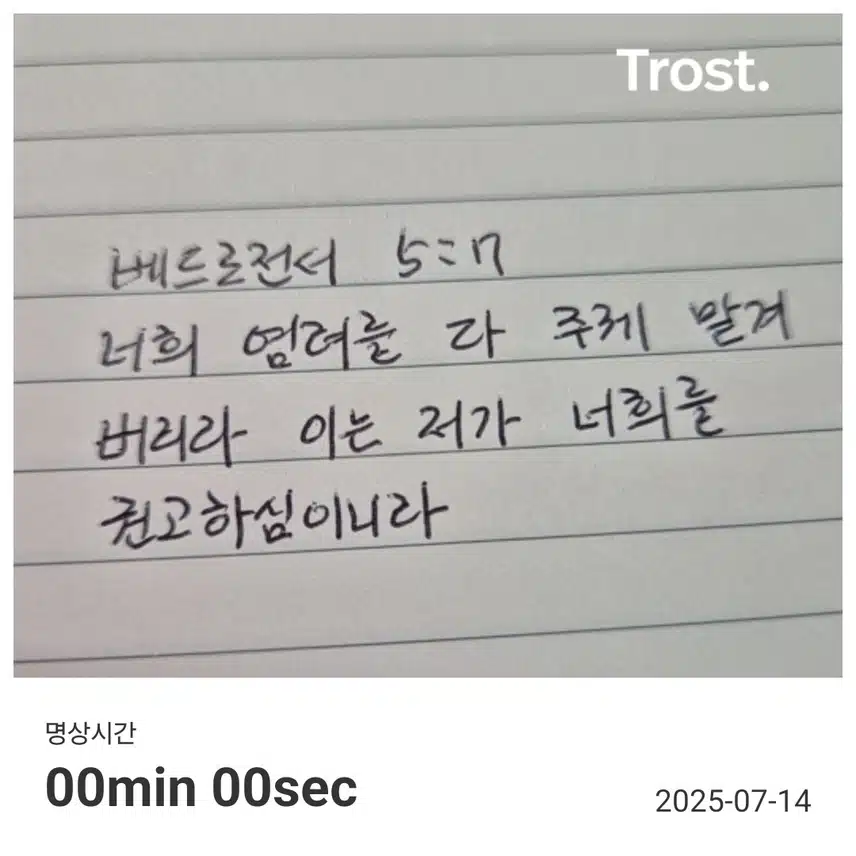 Trost.
베드로전서 5:7
너희 염려를 다 주께 맡겨
버리라 이는 저가 너희를
권고하심이니라
명상시간
00min 00sec
2025-07-14